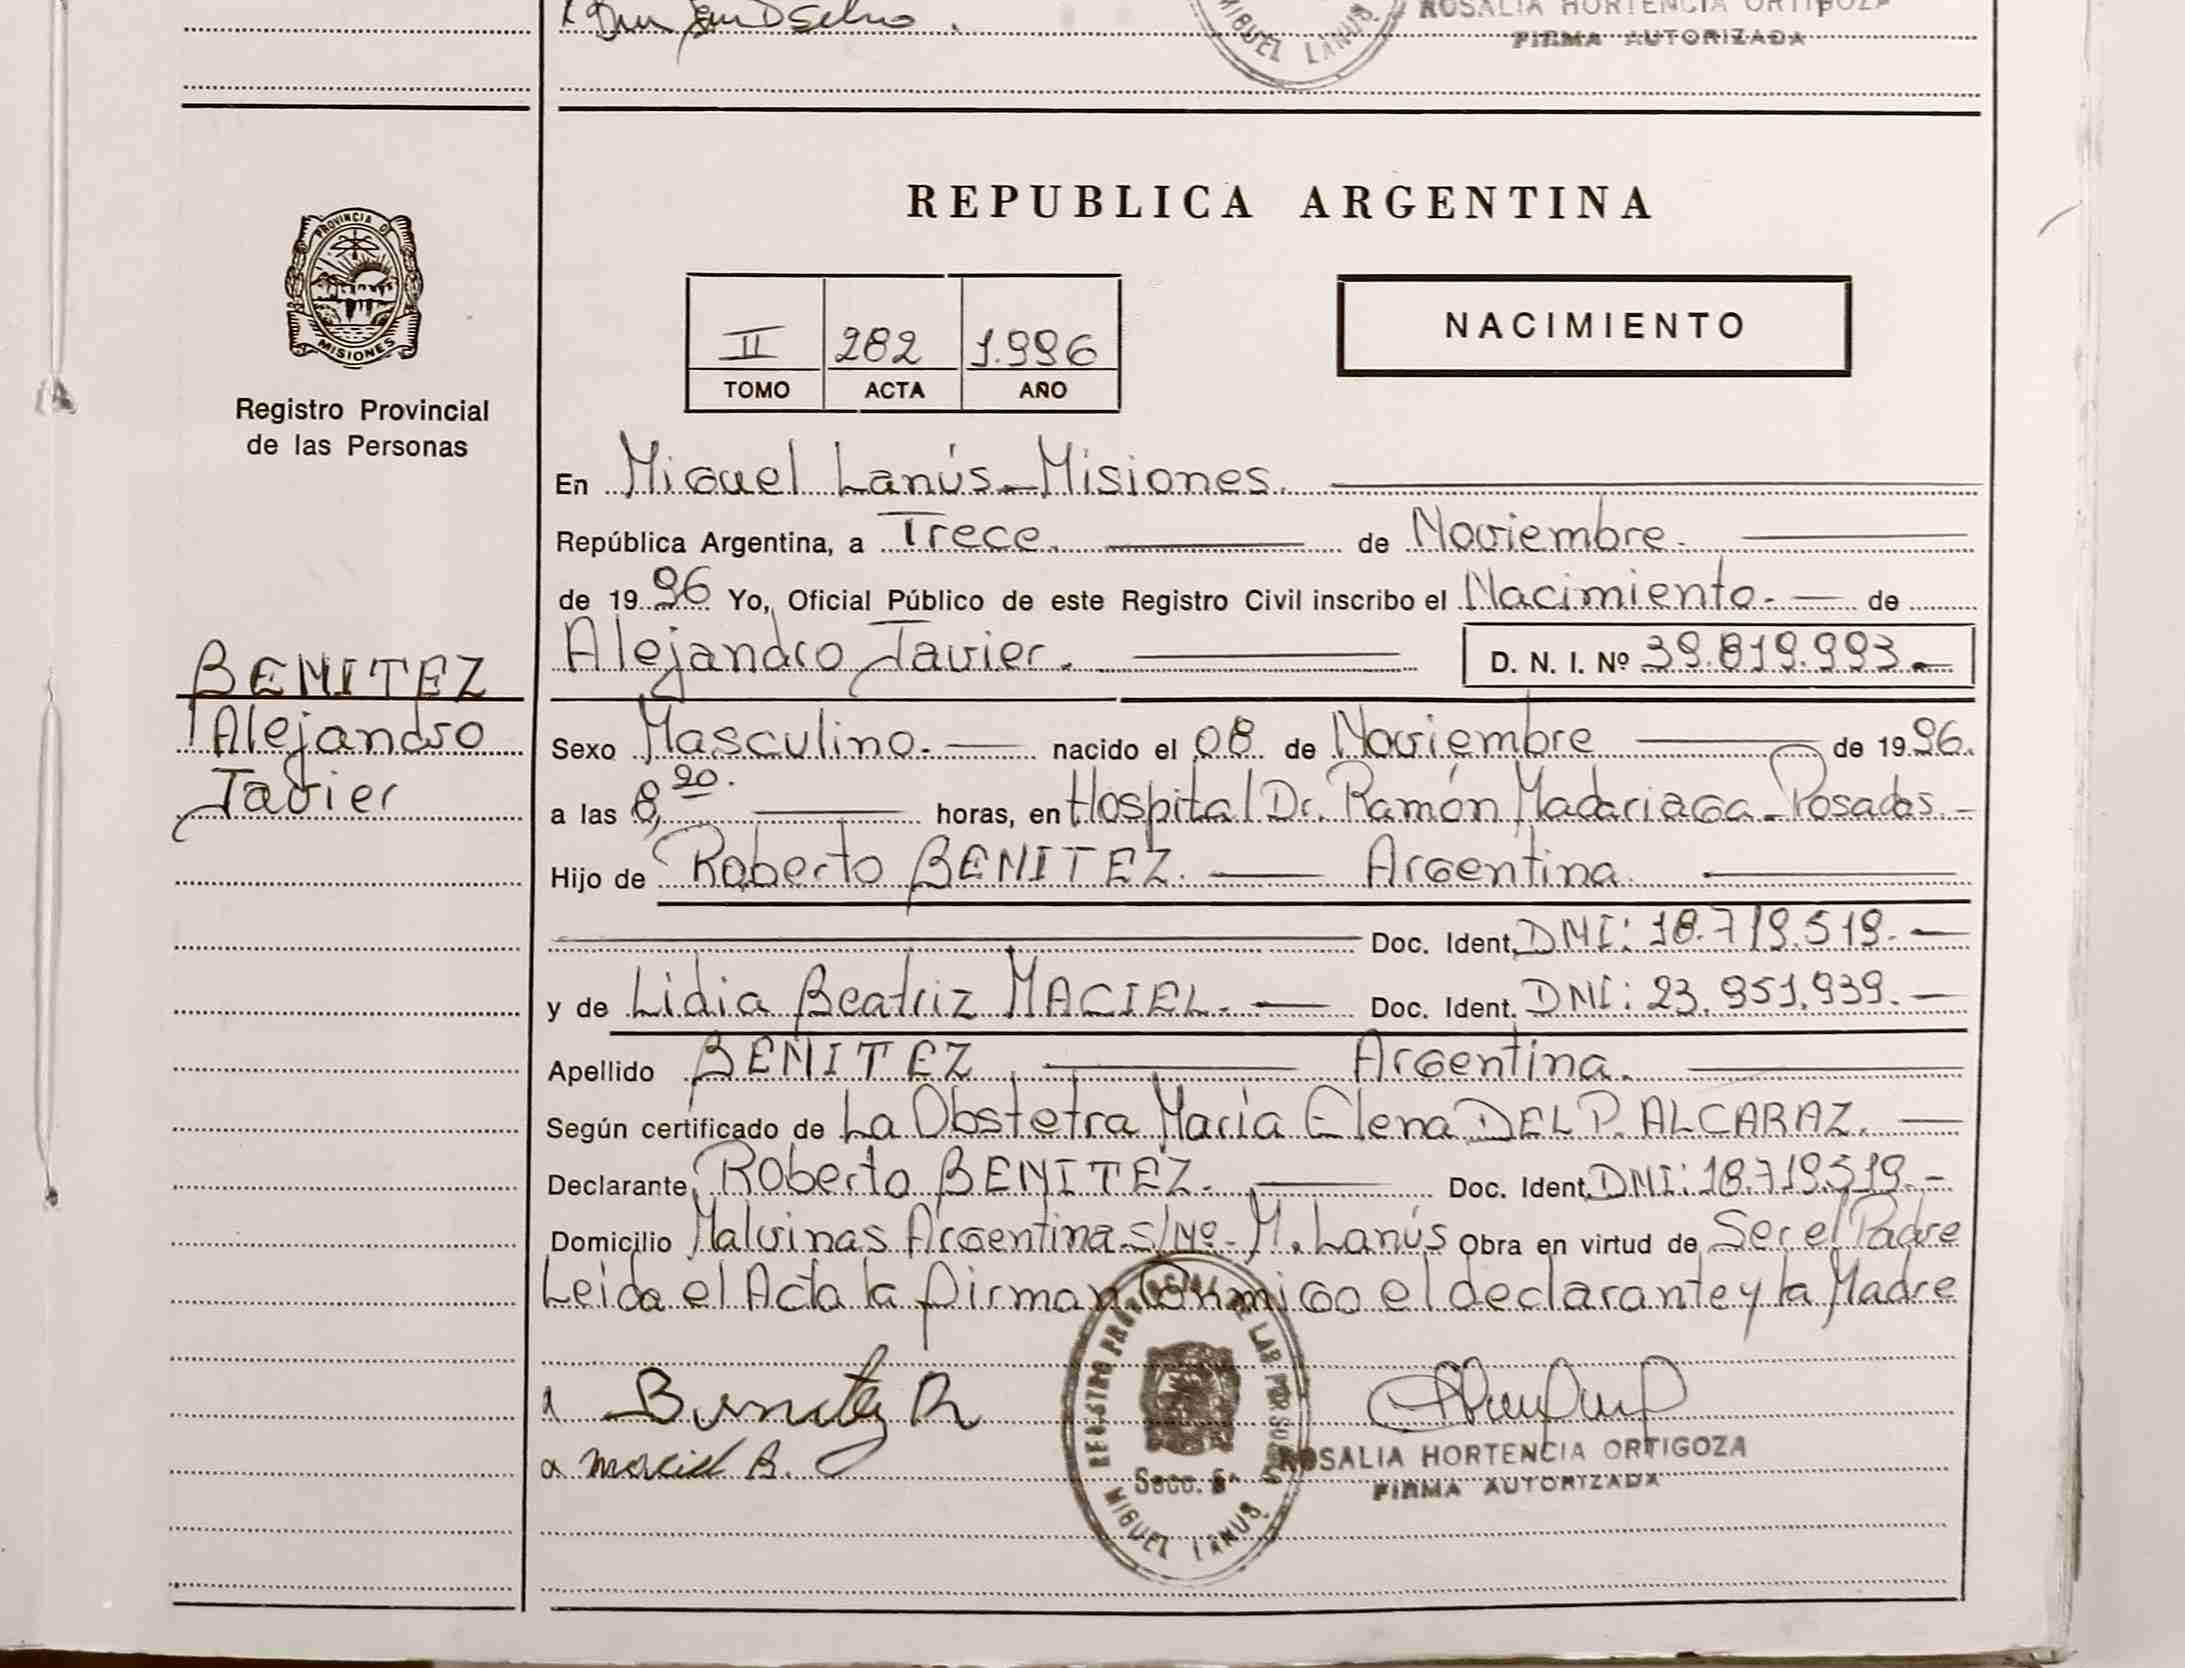 ROSALIA HORTENCIA ORTIGOZA
MIGUEL LANUS
FIRMA AUTORIZADA
PROVINCIA DE
MISIONES
Registro Provincial
de las Personas
REPUBLICA ARGENTINA
II 282 1.996
TOMO ACTA AÑO
NACIMIENTO
En Miguel Lanús - Misiones.
República Argentina, a Trece. de Noviembre.
de 19 96 Yo, Oficial Público de este Registro Civil inscribo el Nacimiento. de
Alejandro Javier. D. N. I. Nº 39.819.993.
BENITEZ
Alejandro
Javier
Sexo Masculino. nacido el 08 de Noviembre de 19 96.
a las 8,20. horas, en Hospital Dr. Ramón Madariaga - Posadas.
Hijo de Roberto BENITEZ. Argentina.
Doc. Ident. DNI: 18.719.519.
y de Lidia Beatriz MACIEL. Doc. Ident. DNI: 23.951.939.
Apellido BENITEZ Argentina.
Según certificado de La Obstetra María Elena DEL P. ALCARAZ.
Declarante Roberto BENITEZ. Doc. Ident. DNI: 18.719.519.-
Domicilio Malvinas Argentina s/Nº - M. Lanús Obra en virtud de Ser el Padre
Leida el Acta la firman Conmigo el declarante y la Madre
Benitez R
Maciel B.
REGISTRO PROVINCIAL DE LAS PERSONAS
Secc. 5ª
MIGUEL LANUS
ROSALIA HORTENCIA ORTIGOZA
FIRMA AUTORIZADA